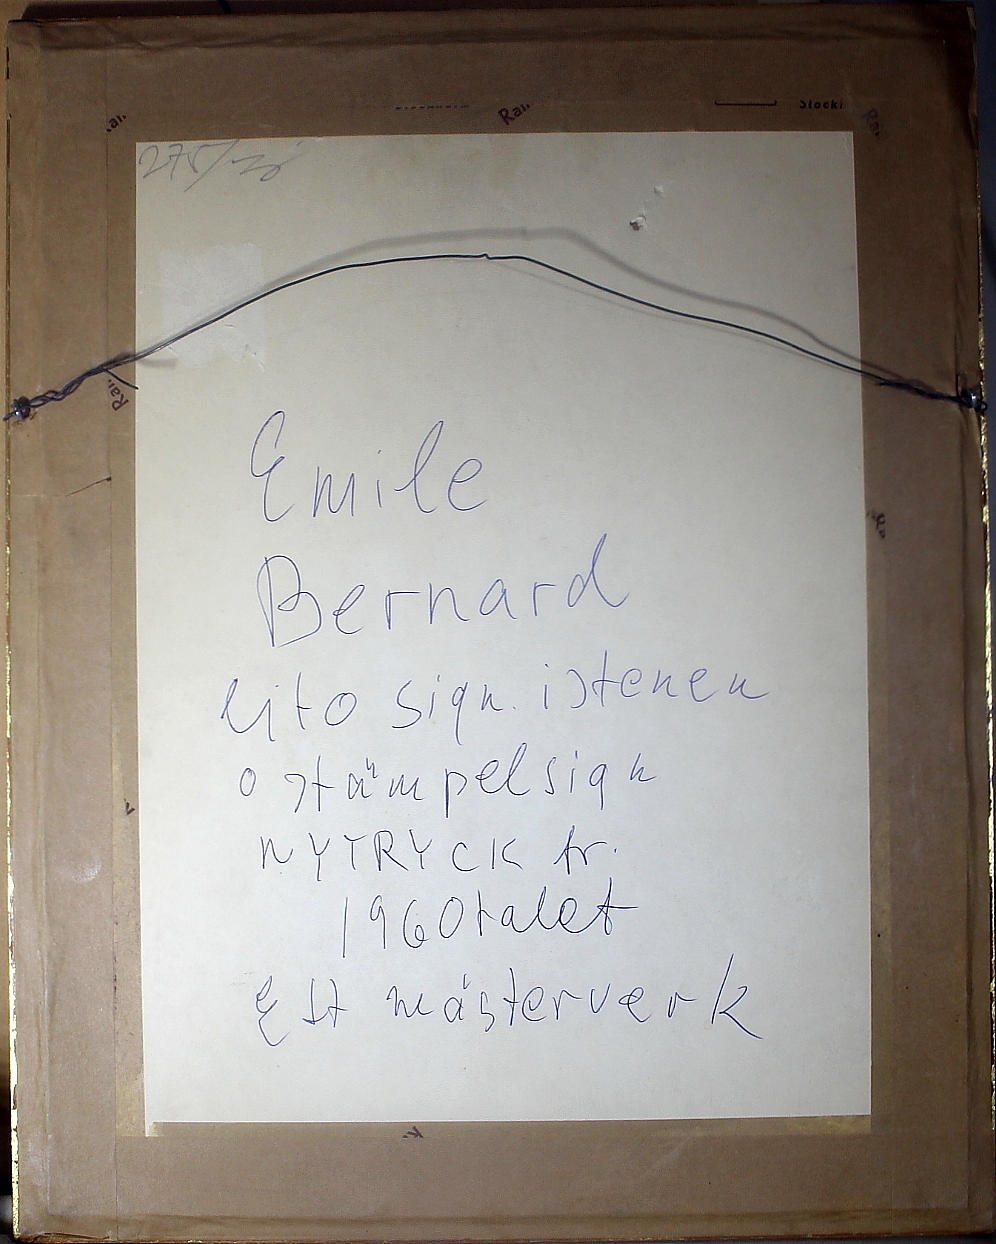 Ram
Stockh
Emile
Bernard
Lito sign. i stenen
o stämpelsign
NYTRYCK fr.
1960talet
Ett mästerverk